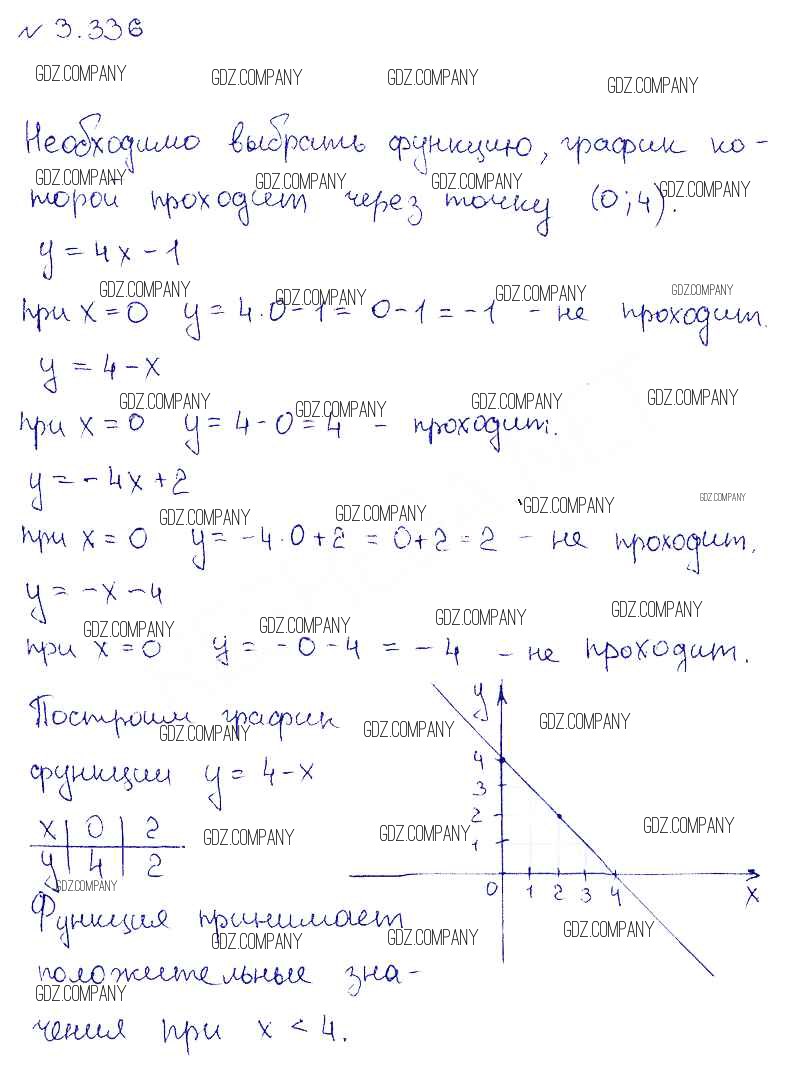 № 3.336
GDZ.COMPANY GDZ.COMPANY GDZ.COMPANY GDZ.COMPANY
Необходимо выбрать функцию, график ко-
GDZ.COMPANY GDZ.COMPANY GDZ.COMPANY GDZ.COMPANY
торой проходит через точку (0;4).
y = 4x - 1
GDZ.COMPANY GDZ.COMPANY GDZ.COMPANY GDZ.COMPANY
при x = 0 y = 4·0 - 1 = 0 - 1 = -1 - не проходит.
y = 4 - x
GDZ.COMPANY GDZ.COMPANY GDZ.COMPANY GDZ.COMPANY
при x = 0 y = 4 - 0 = 4 - проходит.
y = -4x + 2
GDZ.COMPANY GDZ.COMPANY GDZ.COMPANY GDZ.COMPANY
при x = 0 y = -4·0 + 2 = 0 + 2 = 2 - не проходит.
y = -x - 4
GDZ.COMPANY GDZ.COMPANY GDZ.COMPANY GDZ.COMPANY
при x = 0 y = -0 - 4 = -4 - не проходит.
Построим график
GDZ.COMPANY GDZ.COMPANY GDZ.COMPANY
функции y = 4 - x
x 0 2
y 4 2
GDZ.COMPANY GDZ.COMPANY GDZ.COMPANY GDZ.COMPANY
y
4
3
2
1
0 1 2 3 4 x
Функция принимает
GDZ.COMPANY GDZ.COMPANY GDZ.COMPANY
положительные зна-
GDZ.COMPANY
чения при x < 4.